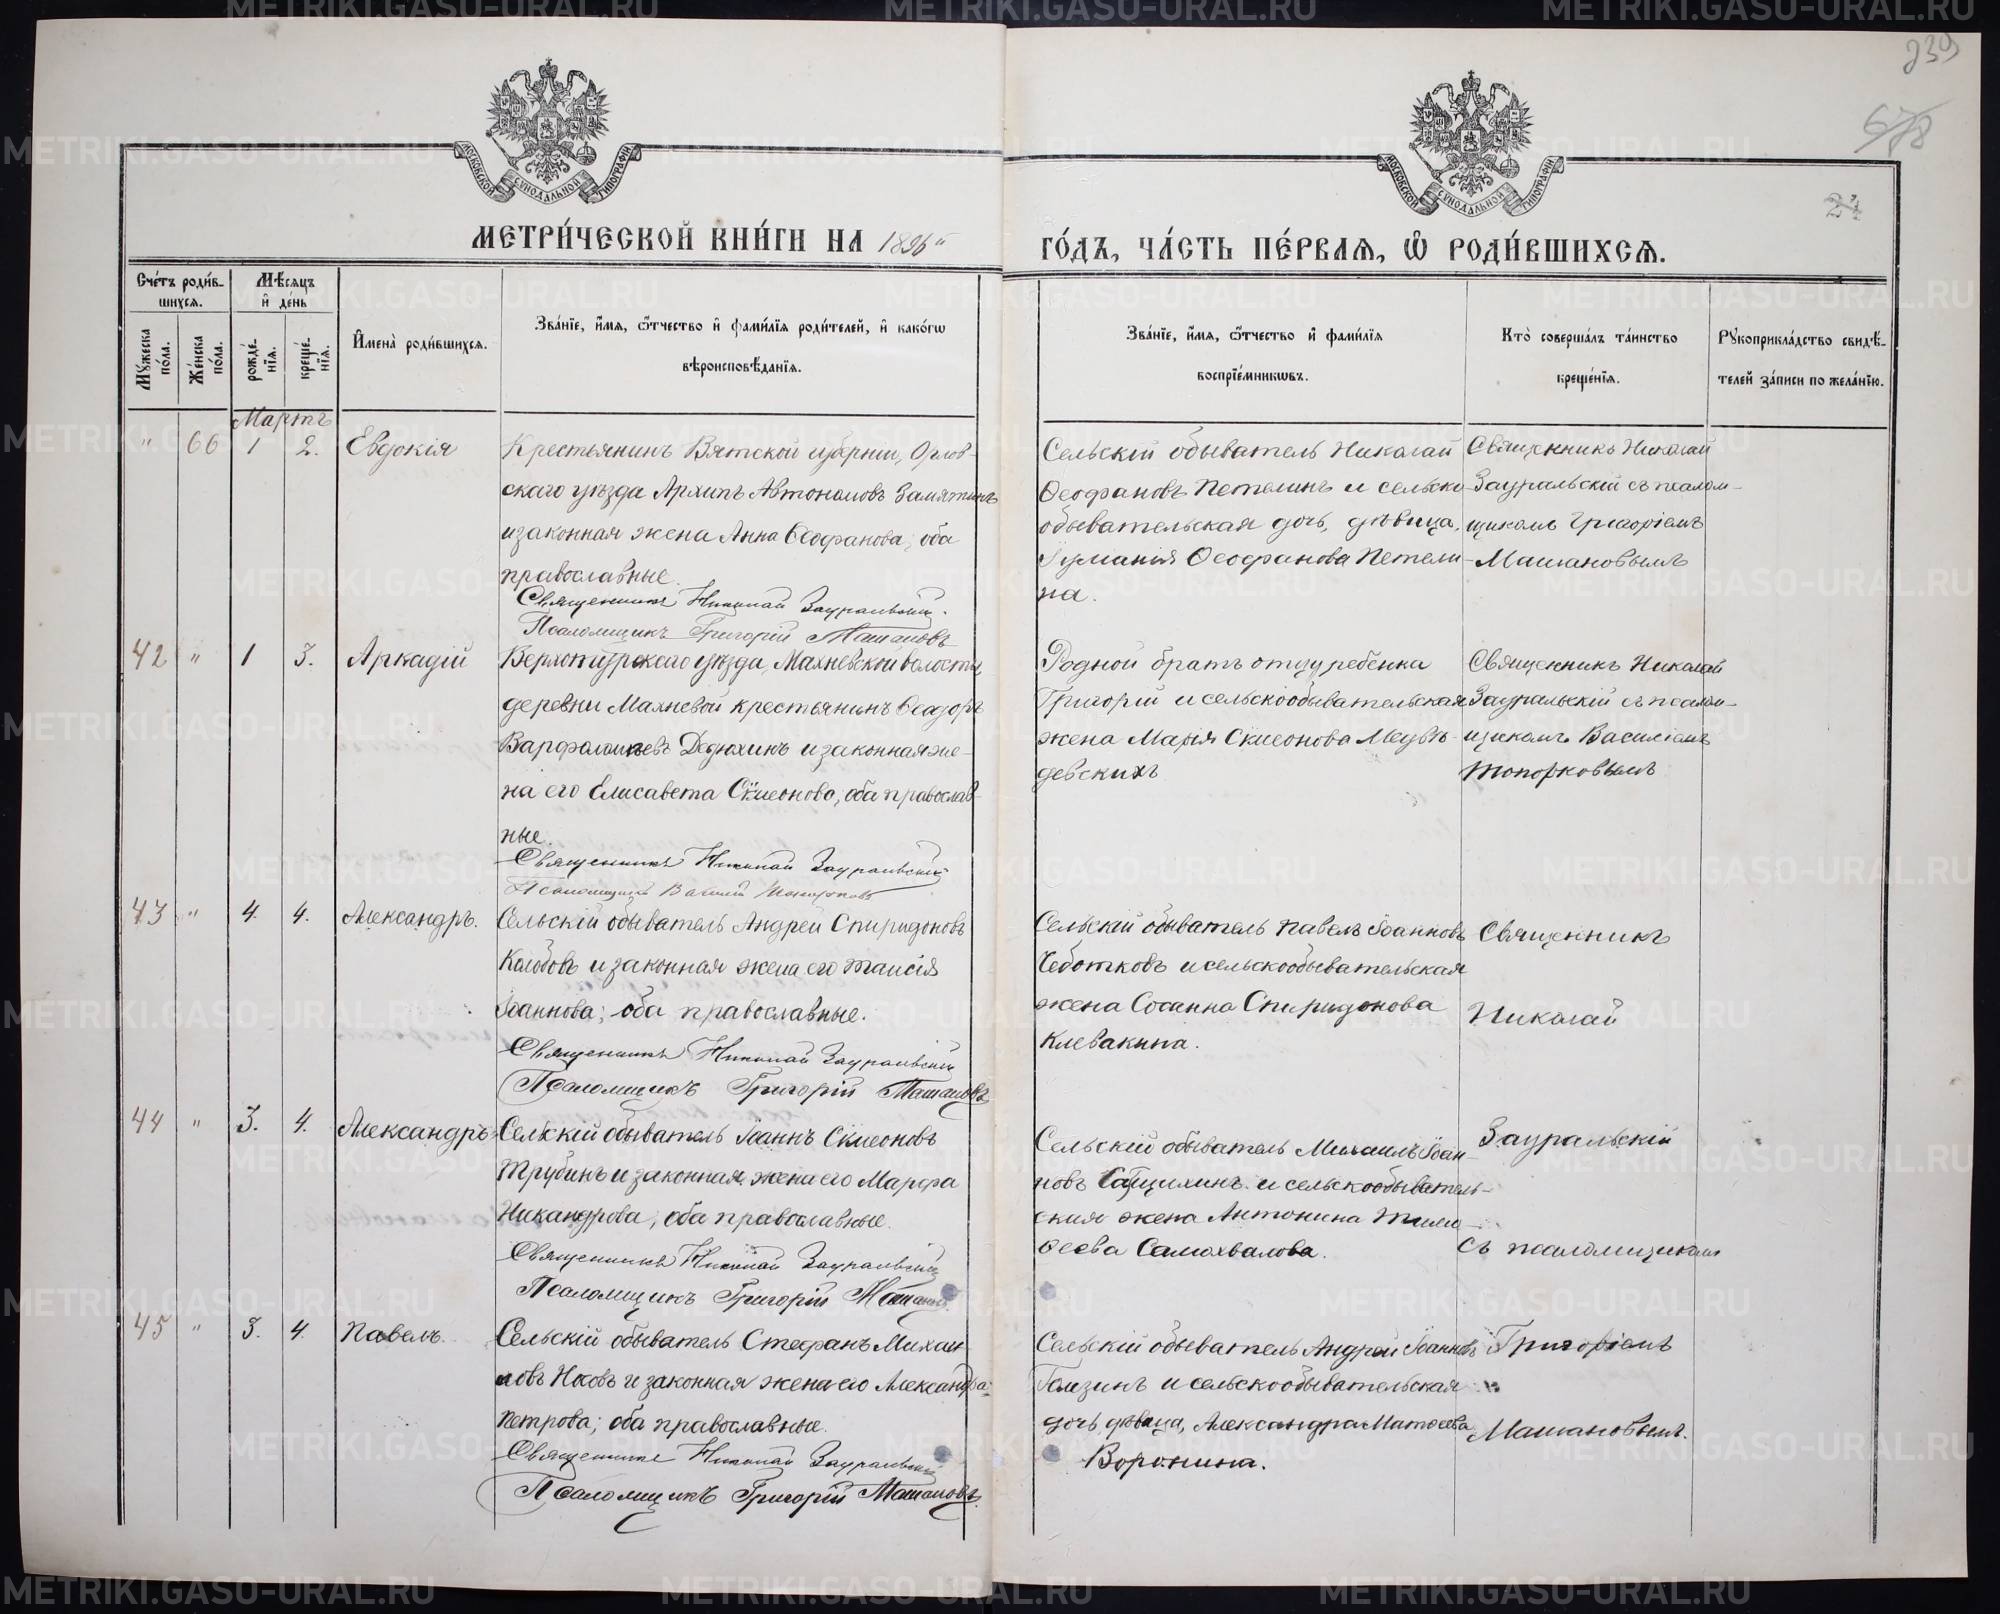 239
678
24
МОСКОВСКОЙ СѴНОДАЛЬНОЙ ТИПОГРАФІИ
МОСКОВСКОЙ СѴНОДАЛЬНОЙ ТИПОГРАФІИ
МЕТРИ́ЧЕСКОЙ КНИ́ГИ НА 1896й
ГО́ДЪ, ЧА́СТЬ ПЕ́РВАЯ, Ѡ҆ РОДИ́ВШИХСЯ.
Сче́тъ роди́в-
шихся.
Мѣ́сяцъ
и҆ де́нь
Мꙋ́жеска по́ла.
Же́нска по́ла.
рожде́-
нїя.
креще́-
нїя.
И҆мена̀ роди́вшихся.
Зва́нїе, и҆́мя, ѻ҆́тчество и҆ фами́лїя роди́телей, и҆ како́гѡ
вѣроисповѣ́данїя.
Зва́нїе, и҆́мя, ѻ҆́тчество и҆ фами́лїя
воспрїе́мникѡвъ.
Кто̀ соверша́лъ та́инство
креще́нїя.
Рꙋкоприкла́дство свидѣ́-
телей за́писи по жела́нїю.
Мартъ
" 66 1 2. Евдокія
Крестьянинъ Вятской губерніи, Орлов-
скаго уѣзда Архипъ Автономовъ Замятинъ
и законная жена Анна Ѳеофанова; оба
православные.
Священникъ Николай Зауральскій.
Псаломщикъ Григорій Машановъ
Сельскій обыватель Николай
Ѳеофановъ Петелинъ и сельско-
обывательская дочь, дѣвица,
Ѳеофанова Петели-
на.
Священникъ Николай
Зауральскій съ псалом-
щикомъ Григоріемъ
Машановымъ
42 " 1 3. Аркадій
Верхотурскаго уѣзда, Махневской волости,
деревни Махневой крестьянинъ Ѳеодоръ
Варфоломеевъ Дедюхинъ и законная же-
на его Елисавета Сѵмеонова, оба православ-
ные.
Священникъ Николай Зауральскій
Псаломщикъ Василій Топорковъ
Родной братъ отцу ребенка
Григорій и сельскообывательская
жена Марія Сѵмеонова Медвѣ-
девскихъ
Священникъ Николай
Зауральскій съ псалом-
щикомъ Василіемъ
Топорковымъ
43 " 4. 4. Александръ.
Сельскій обыватель Андрей Спиридоновъ
Колобовъ и законная жена его Таисія
Іоаннова; оба православные.
Священникъ Николай Зауральскій
Псаломщикъ Григорій Машановъ
Сельскій обыватель Павелъ Іоанновъ
Чеботковъ и сельскообывательская
жена Сосанна Спиридонова
Клевакина.
Священникъ
Николай
44 " 3. 4. Александръ
Сельскій обыватель Іоаннъ Сѵмеоновъ
Трубинъ и законная жена его Марфа
Никандрова; оба православные.
Священникъ Николай Зауральскій
Псаломщикъ Григорій Машановъ
Сельскій обыватель Михаилъ Іоан-
новъ и сельскообыватель-
ская жена Антонина Тимо-
ѳеева Самохвалова.
Зауральскій
съ псаломщикомъ
45 " 3. 4. Павелъ.
Сельскій обыватель Стефанъ Михаи-
ловъ Носовъ и законная жена его Александра
Петрова; оба православные.
Священникъ Николай Зауральскій
Псаломщикъ Григорій Машановъ.
Сельскій обыватель Андрей Іоанновъ
Голезинъ и сельскообывательская
дочь, дѣвица, Александра Матѳеева
Воронина.
Григоріемъ
Машановымъ.
METRIKI.GASO-URAL.RU